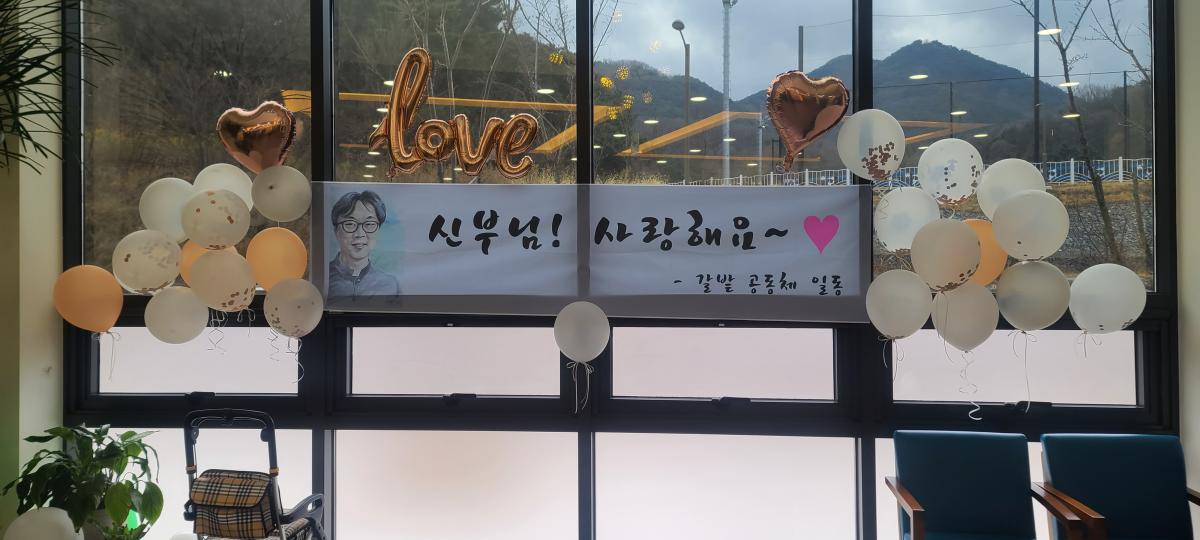 love
신부님! 사랑해요~
- 갈밭 공동체 일동